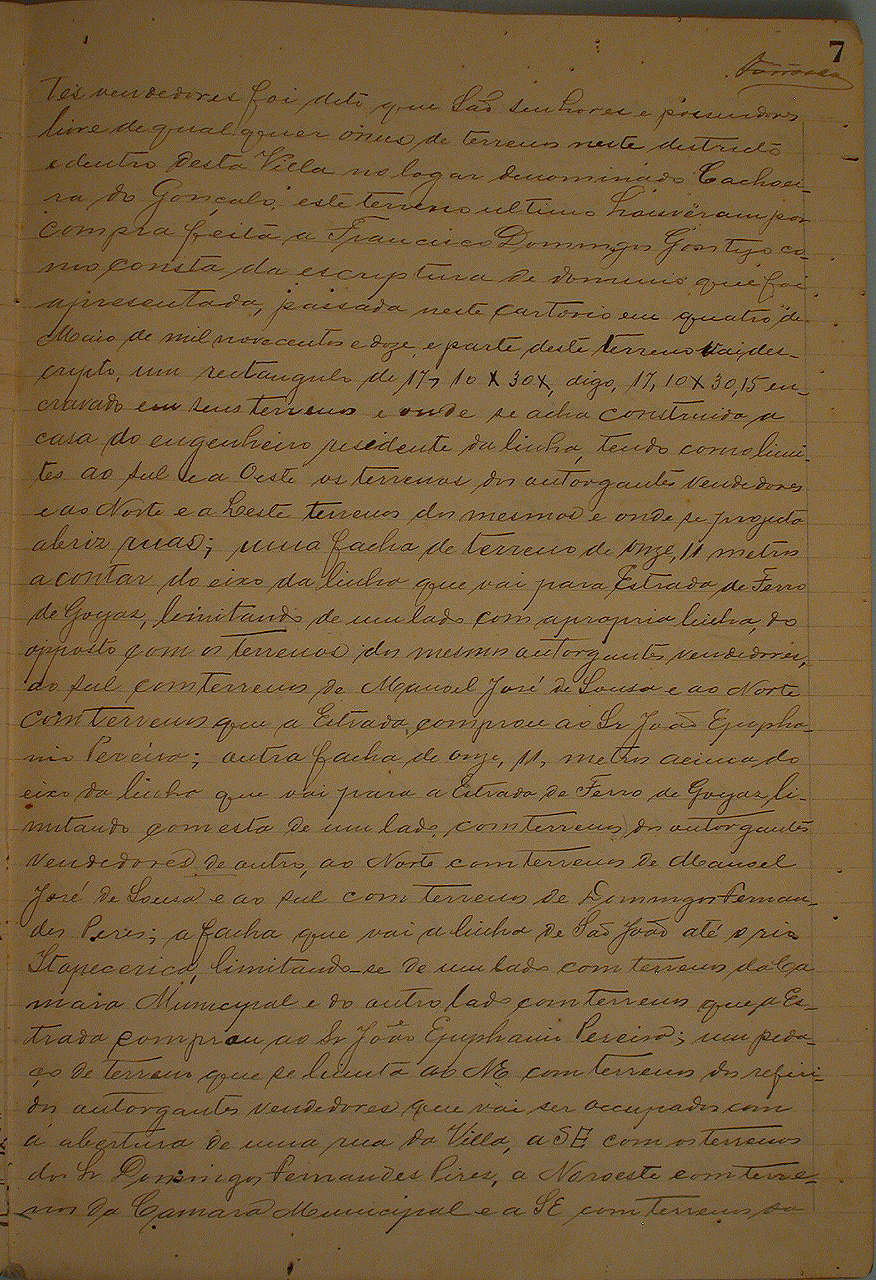 7
tes vendedores foi dito que são senhores e possuidores
livre de qualquer onus de terrenos neste districto
e dentro desta Villa no logar denominado Cachoei-
ra do Gonçalo, este terreno ultimo houveram por
compra feita a Francisco Domingos Gontijo co-
mo consta da escriptura de dominio que foi
apresentada, passada neste cartorio em quatro de
Maio de mil novecentos e doze, e parte deste terreno vai des-
cripto, um rectangulo de 17, 10 X 30 X, digo, 17,10 X 30,15 en-
cravado em seus terrenos e onde se acha construida a
casa do engenheiro residente da linha, tendo como limi-
tes ao sul e a Oeste os terrenos dos autorgantes vendedores
e ao Norte e a Leste terrenos dos mesmos e onde se projecta
abrir ruas; uma facha de terreno de onze, 11 metros
a contar do eixo da linha que vai para Estrada de Ferro
de Goyaz, limitando de um lado com a propria linha, do
opposto com os terrenos dos mesmos autorgantes vendedores,
ao sul com terrenos de Manoel José de Sousa e ao Norte
com terrenos que a Estrada comprou ao Sr João Epipha-
nio Pereira; outra facha de onze, 11, metros acima do
eixo da linha que vai para a Estrada de Ferro de Goyaz, li-
mitando com esta de um lado, com terrenos dos autorgantes
vendedores de outro, ao Norte com terrenos de Manoel
José de Sousa e ao sul com terrenos de Domingos Fernan-
des Peres; a facha que vai a linha de São João até o rio
Itapecerica, limitando-se de um lado com terrenos da Ca
mara Municipal e do outro lado com terrenos que a Es-
trada comprou ao Sr João Epiphanio Pereira; um peda-
ço de terreno que se limita ao NE com terrenos dos referi-
dos autorgantes vendedores que vai ser occupados com
a abertura de uma rua da Villa, a SE com os terrenos
do Sr Domingos Fernandes Pires, a Noroeste com terre-
nos da Camara Municipal e a SE com terrenos da